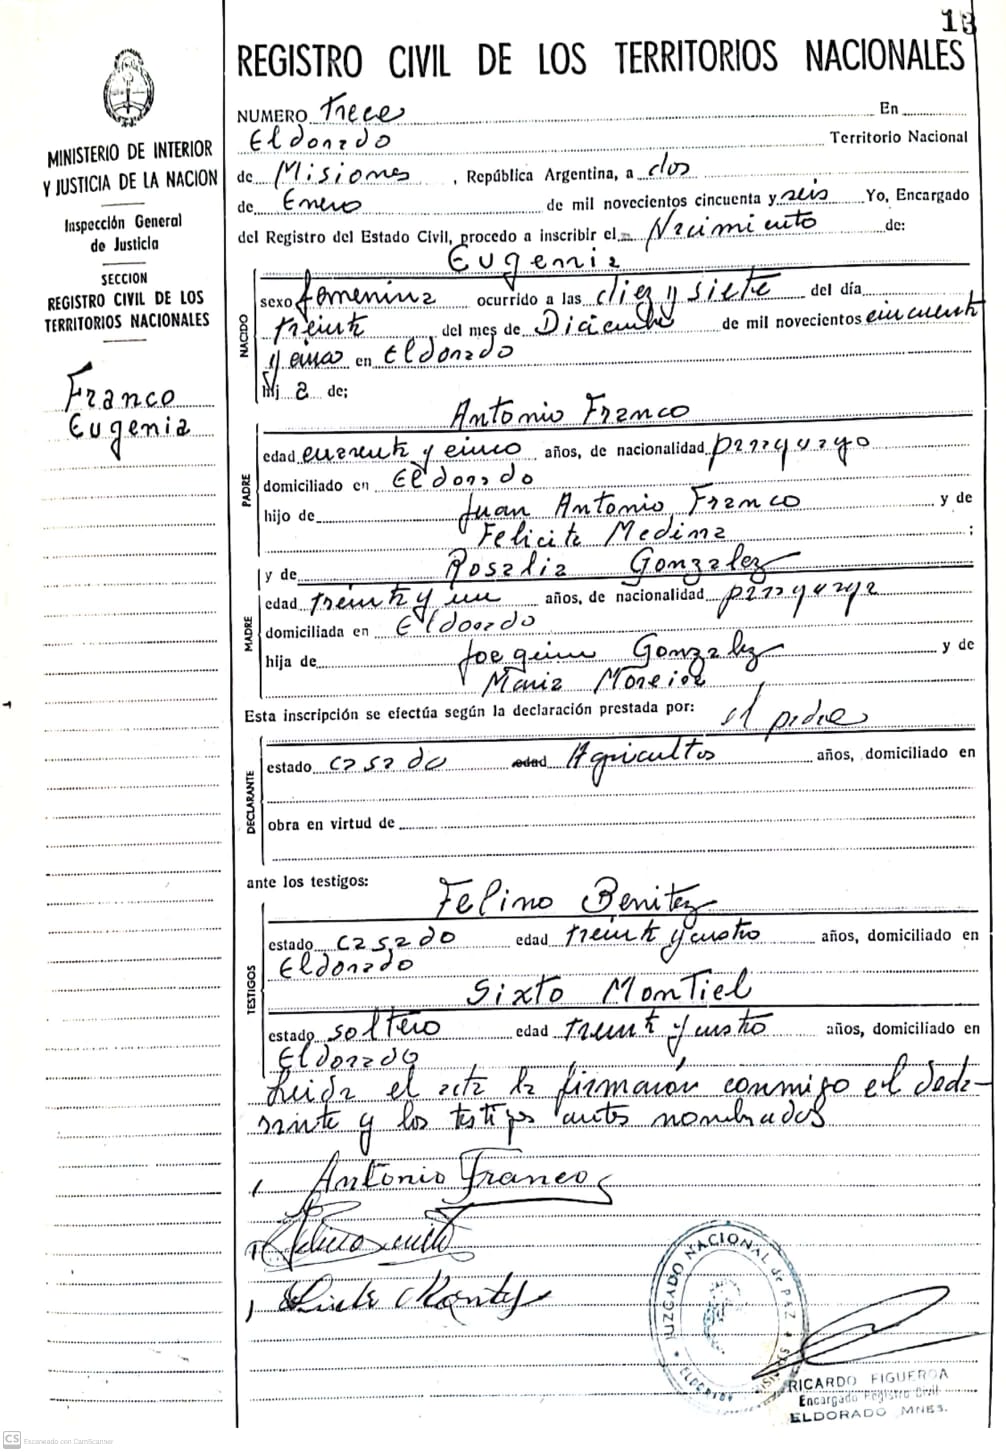 13
REGISTRO CIVIL DE LOS TERRITORIOS NACIONALES
MINISTERIO DE INTERIOR
Y JUSTICIA DE LA NACION
Inspección General
de Justicia
SECCION
REGISTRO CIVIL DE LOS
TERRITORIOS NACIONALES
Franco
Eugenia
NUMERO Trece En
Eldorado Territorio Nacional
de Misiones, República Argentina, a dos
de Enero de mil novecientos cincuenta y seis Yo, Encargado
del Registro del Estado Civil, procedo a inscribir el Nacimiento de:
Eugenia
NACIDO
sexo femenina ocurrido a las diez y siete del día
treinta del mes de Diciembre de mil novecientos cincuenta
y cinco en Eldorado
Hij a de;
Antonio Franco
PADRE
edad cuarenta y cinco años, de nacionalidad paraguayo
domiciliado en Eldorado
hijo de Juan Antonio Franco y de
Felicita Medina ;
y de Rosalia Gonzalez
MADRE
edad treinta y un años, de nacionalidad paraguaya
domiciliada en Eldorado
hija de Joaquin Gonzalez y de
Maria Moreira
Esta inscripción se efectúa según la declaración prestada por: el padre
DECLARANTE
estado casado edad Agricultor años, domiciliado en
obra en virtud de
ante los testigos:
Felino Benitez
TESTIGOS
estado casado edad treinta y cuatro años, domiciliado en
Eldorado
Sixto Montiel
estado soltero edad treinta y cuatro años, domiciliado en
Eldorado
Leida el acta la firmaron conmigo el decla-
rante y los testigos antes nombrados
Antonio Franco
JUZGADO NACIONAL de PAZ
ELDORADO MISIONES
RICARDO FIGUEROA
Encargado Registro Civil
ELDORADO MNES.
CS Escaneado con CamScanner